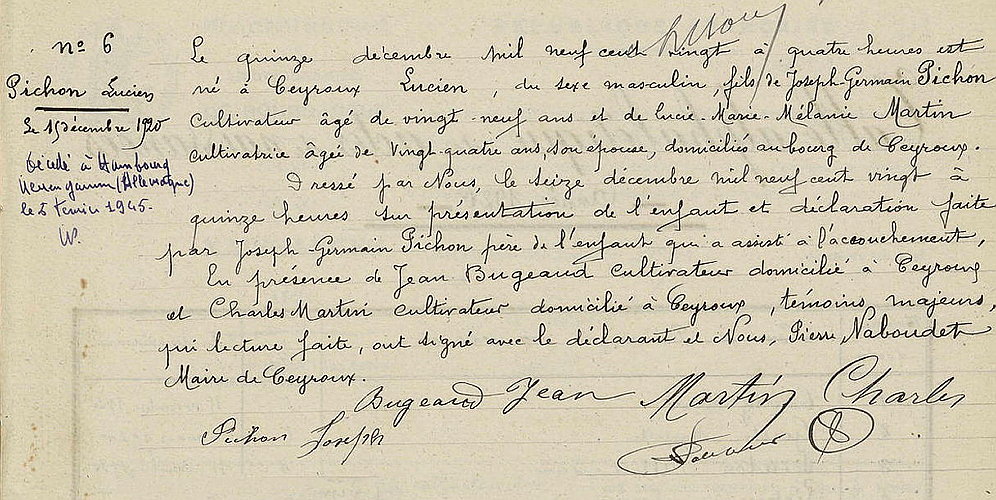 nº 6
Pichon Lucien
Le 15 décembre 1920
Décédé à Hambourg
Neuengamm (Allemagne)
le 5 février 1945.
Le quinze décembre mil neuf cent vingt à quatre heures est
né à Ceyroux Lucien, du sexe masculin, fils de Joseph-Germain Pichon
Cultivateur âgé de vingt-neuf ans et de Lucie-Marie-Mélanie Martin
cultivatrice âgée de Vingt-quatre ans, son épouse, domiciliés au bourg de Ceyroux.
Dressé par Nous, le seize décembre mil neuf cent vingt à
quinze heures sur présentation de l'enfant et déclaration faite
par Joseph-Germain Pichon père de l'enfant qui a assisté à l'accouchement,
En présence de Jean Bugeaud Cultivateur domicilié à Ceyroux
et Charles Martin cultivateur domicilié à Ceyroux, témoins, majeurs,
qui lecture faite, ont signé avec le déclarant et Nous, Pierre Naboudet
Maire de Ceyroux.
Bugeaud Jean Martin Charles
Pichon Joseph